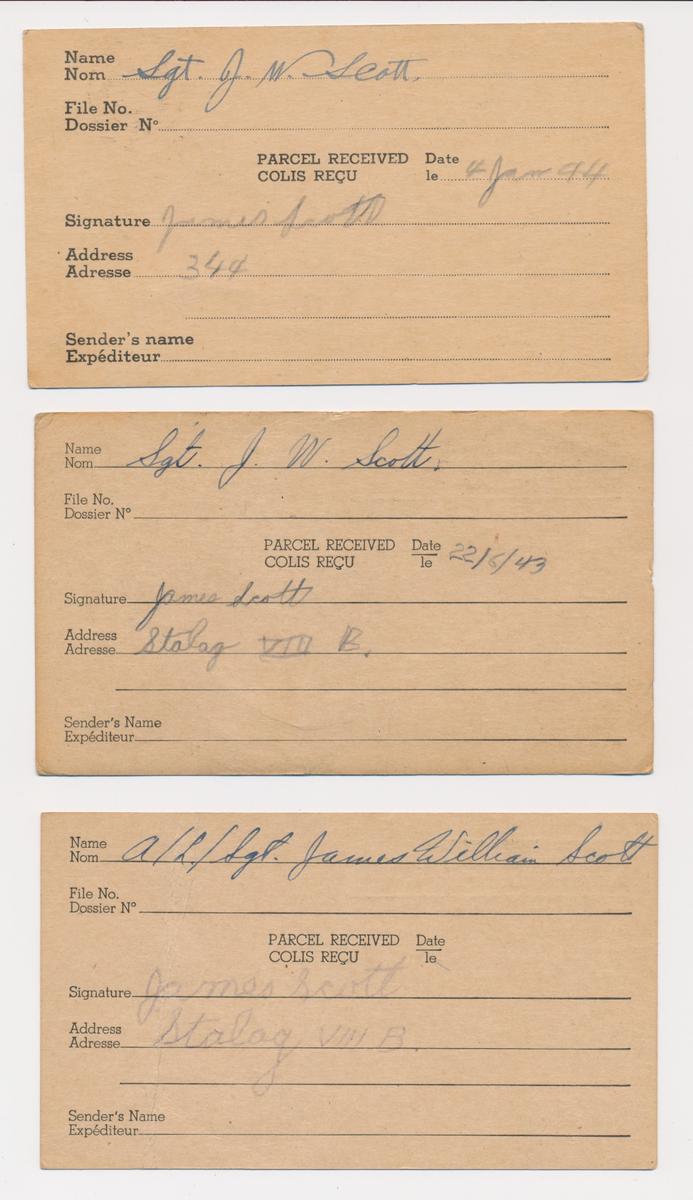 Name
Nom Sgt. J. W. Scott.
File No.
Dossier Nº
PARCEL RECEIVED Date
COLIS REÇU le 4 Jan 44
Signature James Scott
Address
Adresse 344
Sender's name
Expéditeur
Name
Nom Sgt. J. W. Scott.
File No.
Dossier Nº
PARCEL RECEIVED Date
COLIS REÇU le 22/6/43
Signature James Scott
Address
Adresse Stalag VIII B.
Sender's Name
Expéditeur
Name
Nom A/L/Sgt. James William Scott
File No.
Dossier Nº
PARCEL RECEIVED Date
COLIS REÇU le
Signature James Scott
Address
Adresse Stalag VIII B.
Sender's Name
Expéditeur